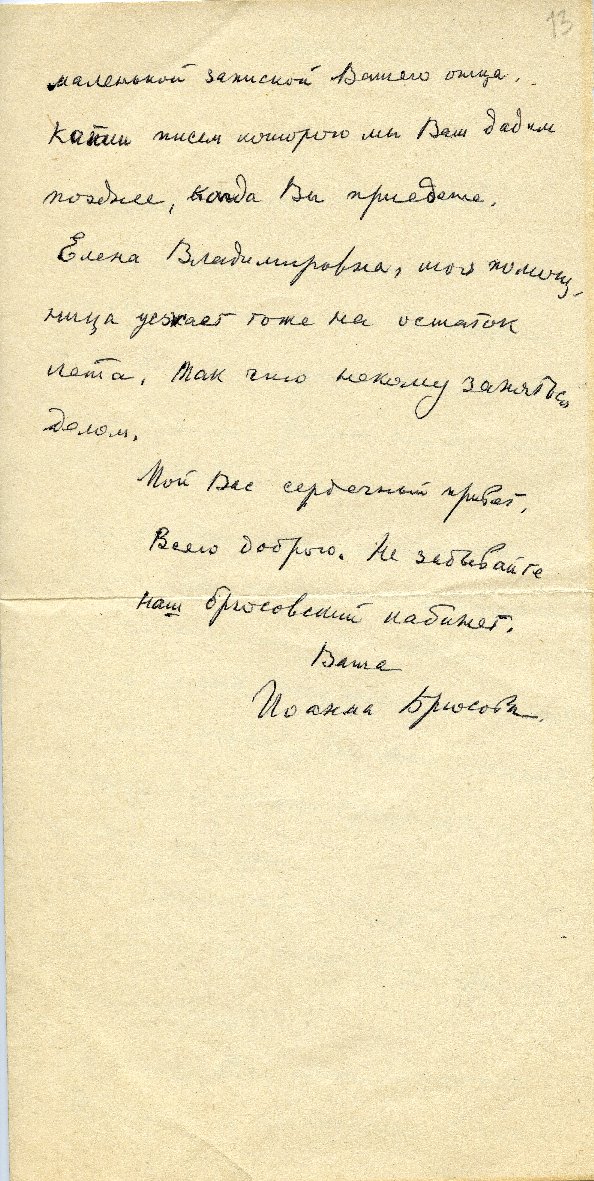 13
маленькой запиской Вашего отца,
копии писем которого мы Вам дадим
позднее, когда Вы приедете.
Елена Владимировна, моя помощ-
ница уезжает тоже на остаток
лета. Так что некому заняться
делом.
Мой Вас сердечный привет,
Всего доброго. Не забывайте
наш брюсовский кабинет.
Ваша
Иоанна Брюсова.